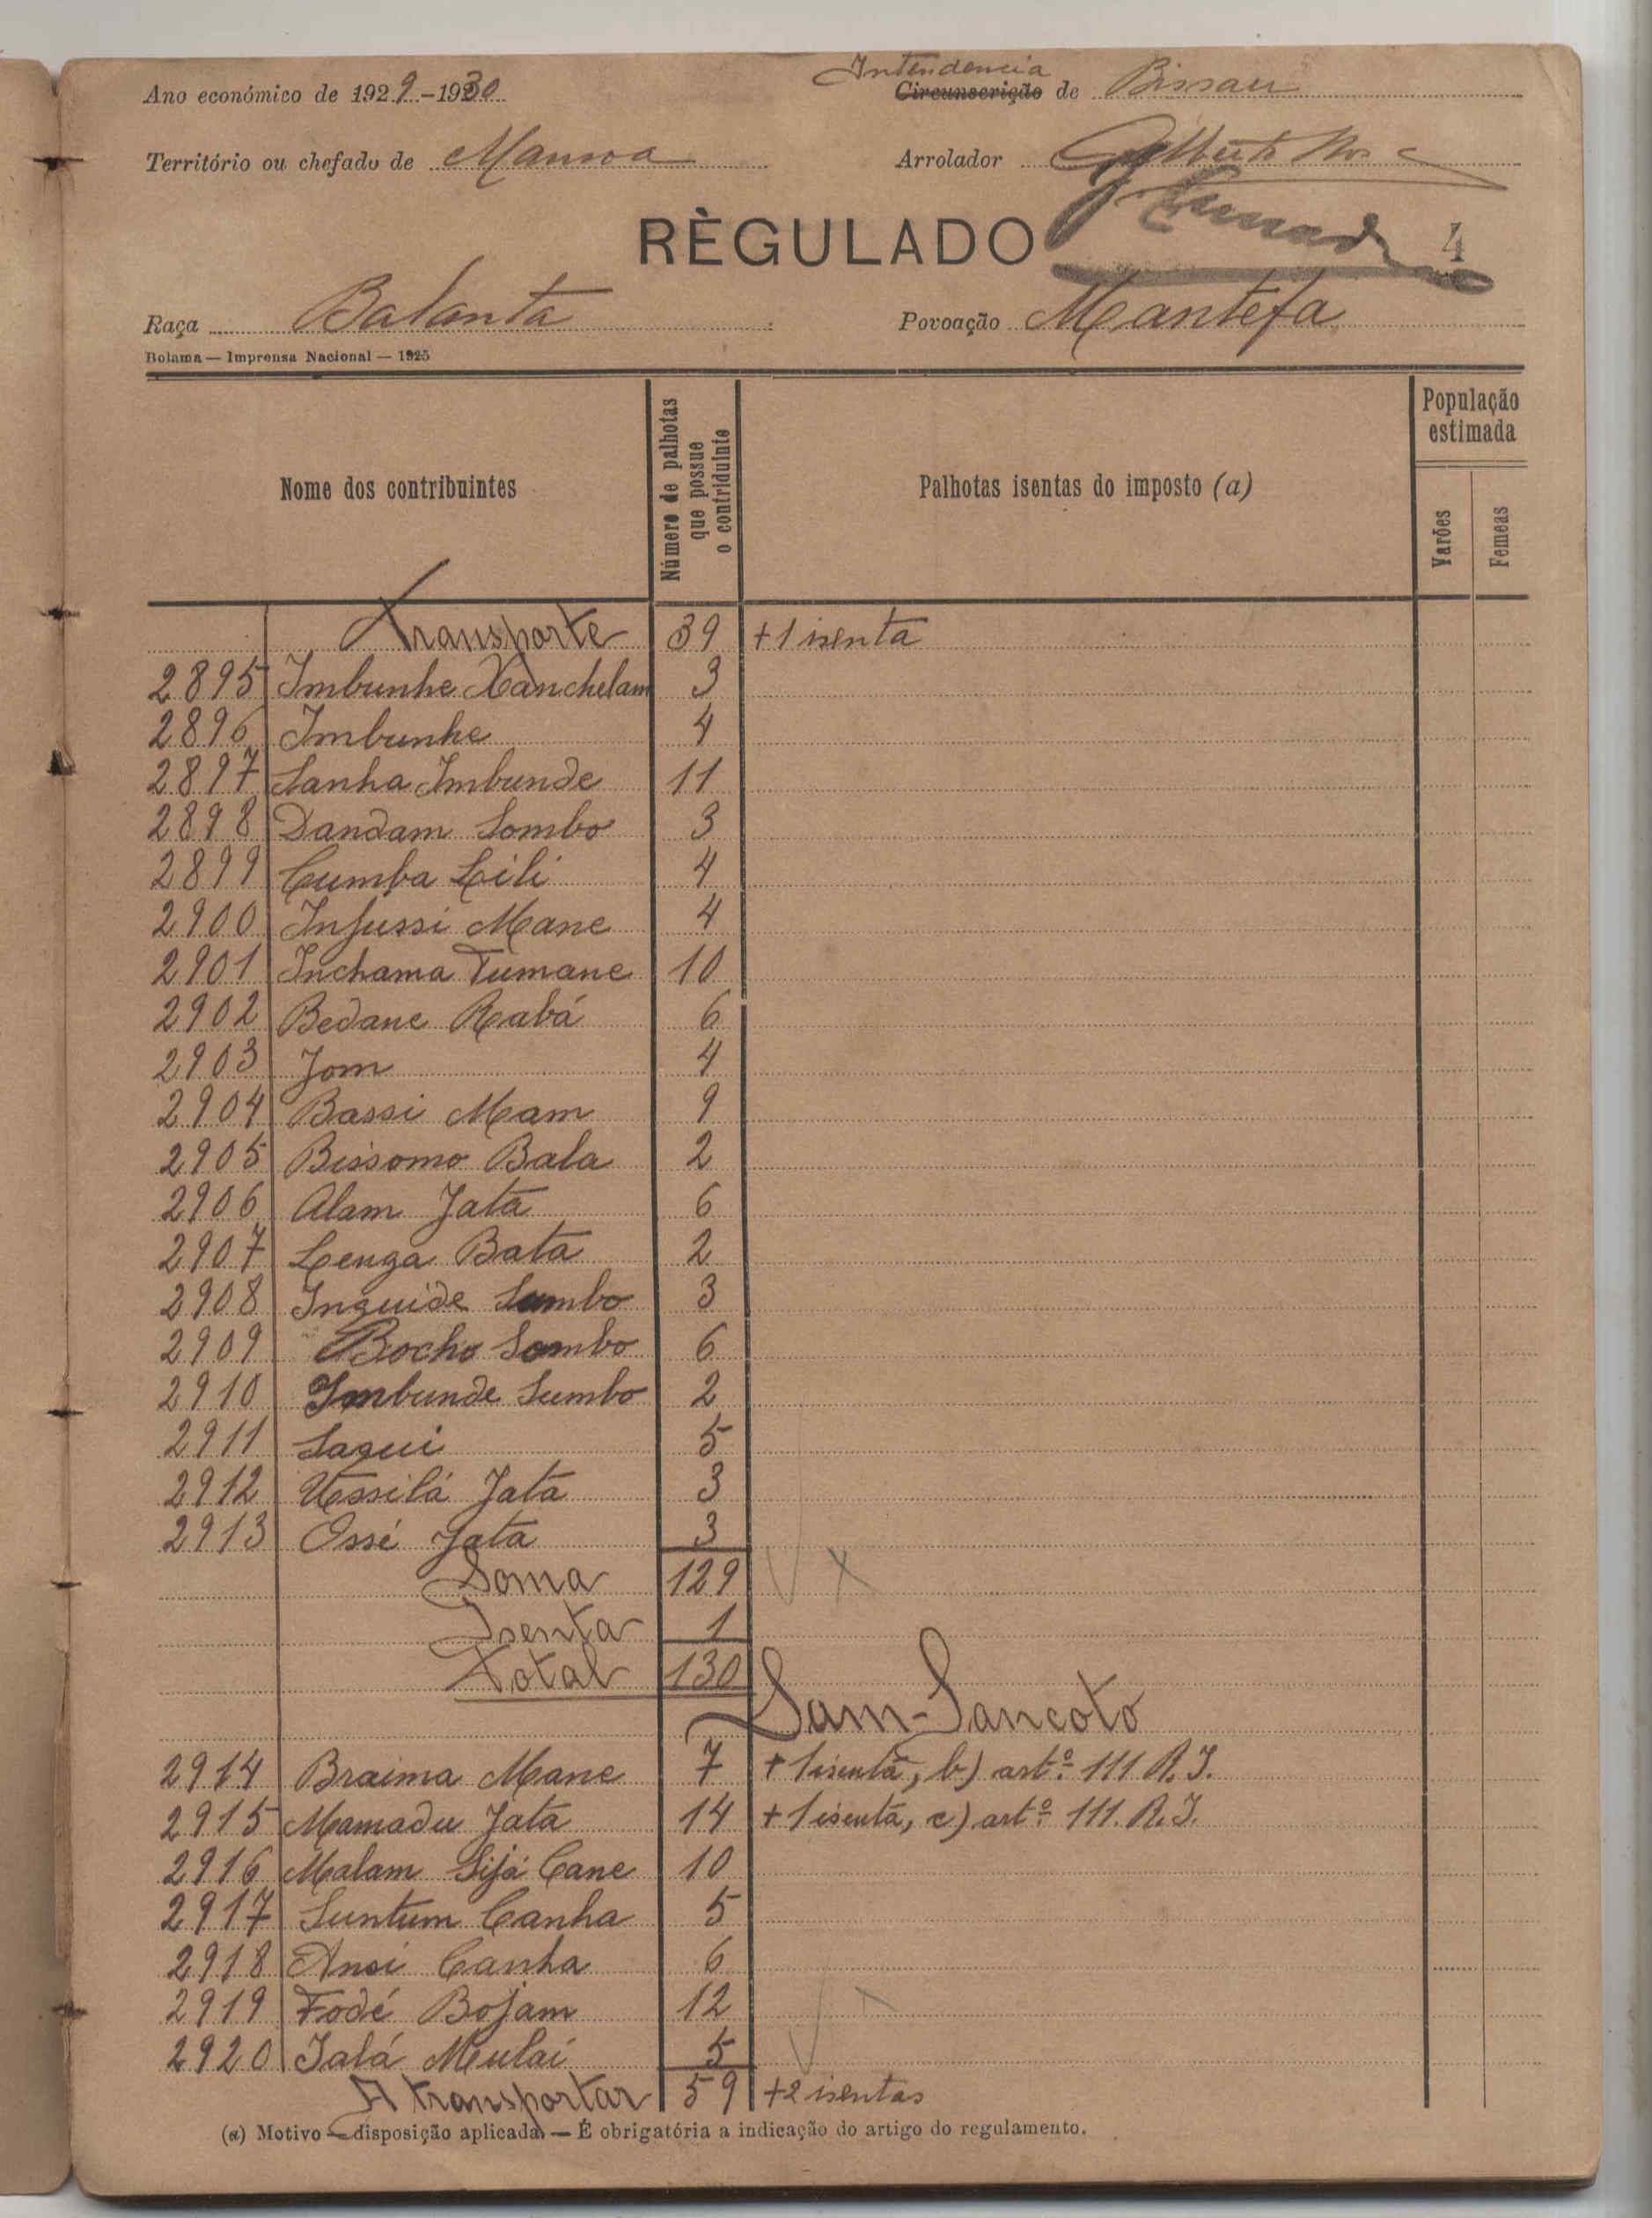 Ano económico de 1929-1930
Intendencia
Circunscrição de Bissau
Território ou chefado de Mansoa
Arrolador
RÈGULADO
4
Raça Balanta
Povoação Mantefa
Bolama — Imprensa Nacional — 1925
Nome dos contribuintes
Número de palhotas que possue o contriduinte
Palhotas isentas do imposto (a)
População estimada
Varões
Femeas
Transporte 39 +1 isenta
2895 Imbunhe Xanchelam 3
2896 Imbunhe 4
2897 Sanha Imbunde 11
2898 Dandam Sombo 3
2899 Cumba Lili 4
2900 Infussi Mane 4
2901 Inchama Tumane 10
2902 Bedane Rabá 6
2903 Jom 4
2904 Bassi Mam 9
2905 Bissomo Bala 2
2906 Alam Jata 6
2907 Lenga Bata 2
2908 Inquide Sambo 3
2909 Bocho Sombo 6
2910 Imbunde Sumbo 2
2911 Sagui 5
2912 Ussilá Jata 3
2913 Ossé Jata 3
Soma 129
Isenta 1
Total 130
Sam-Sancoto
2914 Braima Mane 7 +1 isenta, b) artº 111 R. I.
2915 Mamadu Jata 14 +1 isenta, c) artº 111. R. I.
2916 Malam Sijá Cane 10
2917 Suntum Canha 5
2918 Ansi Canha 6
2919 Fodé Bojam 12
2920 Ialá Mulai 5
A transportar 59 +2 isentas
(a) Motivo — disposição aplicada. — É obrigatória a indicação do artigo do regulamento.